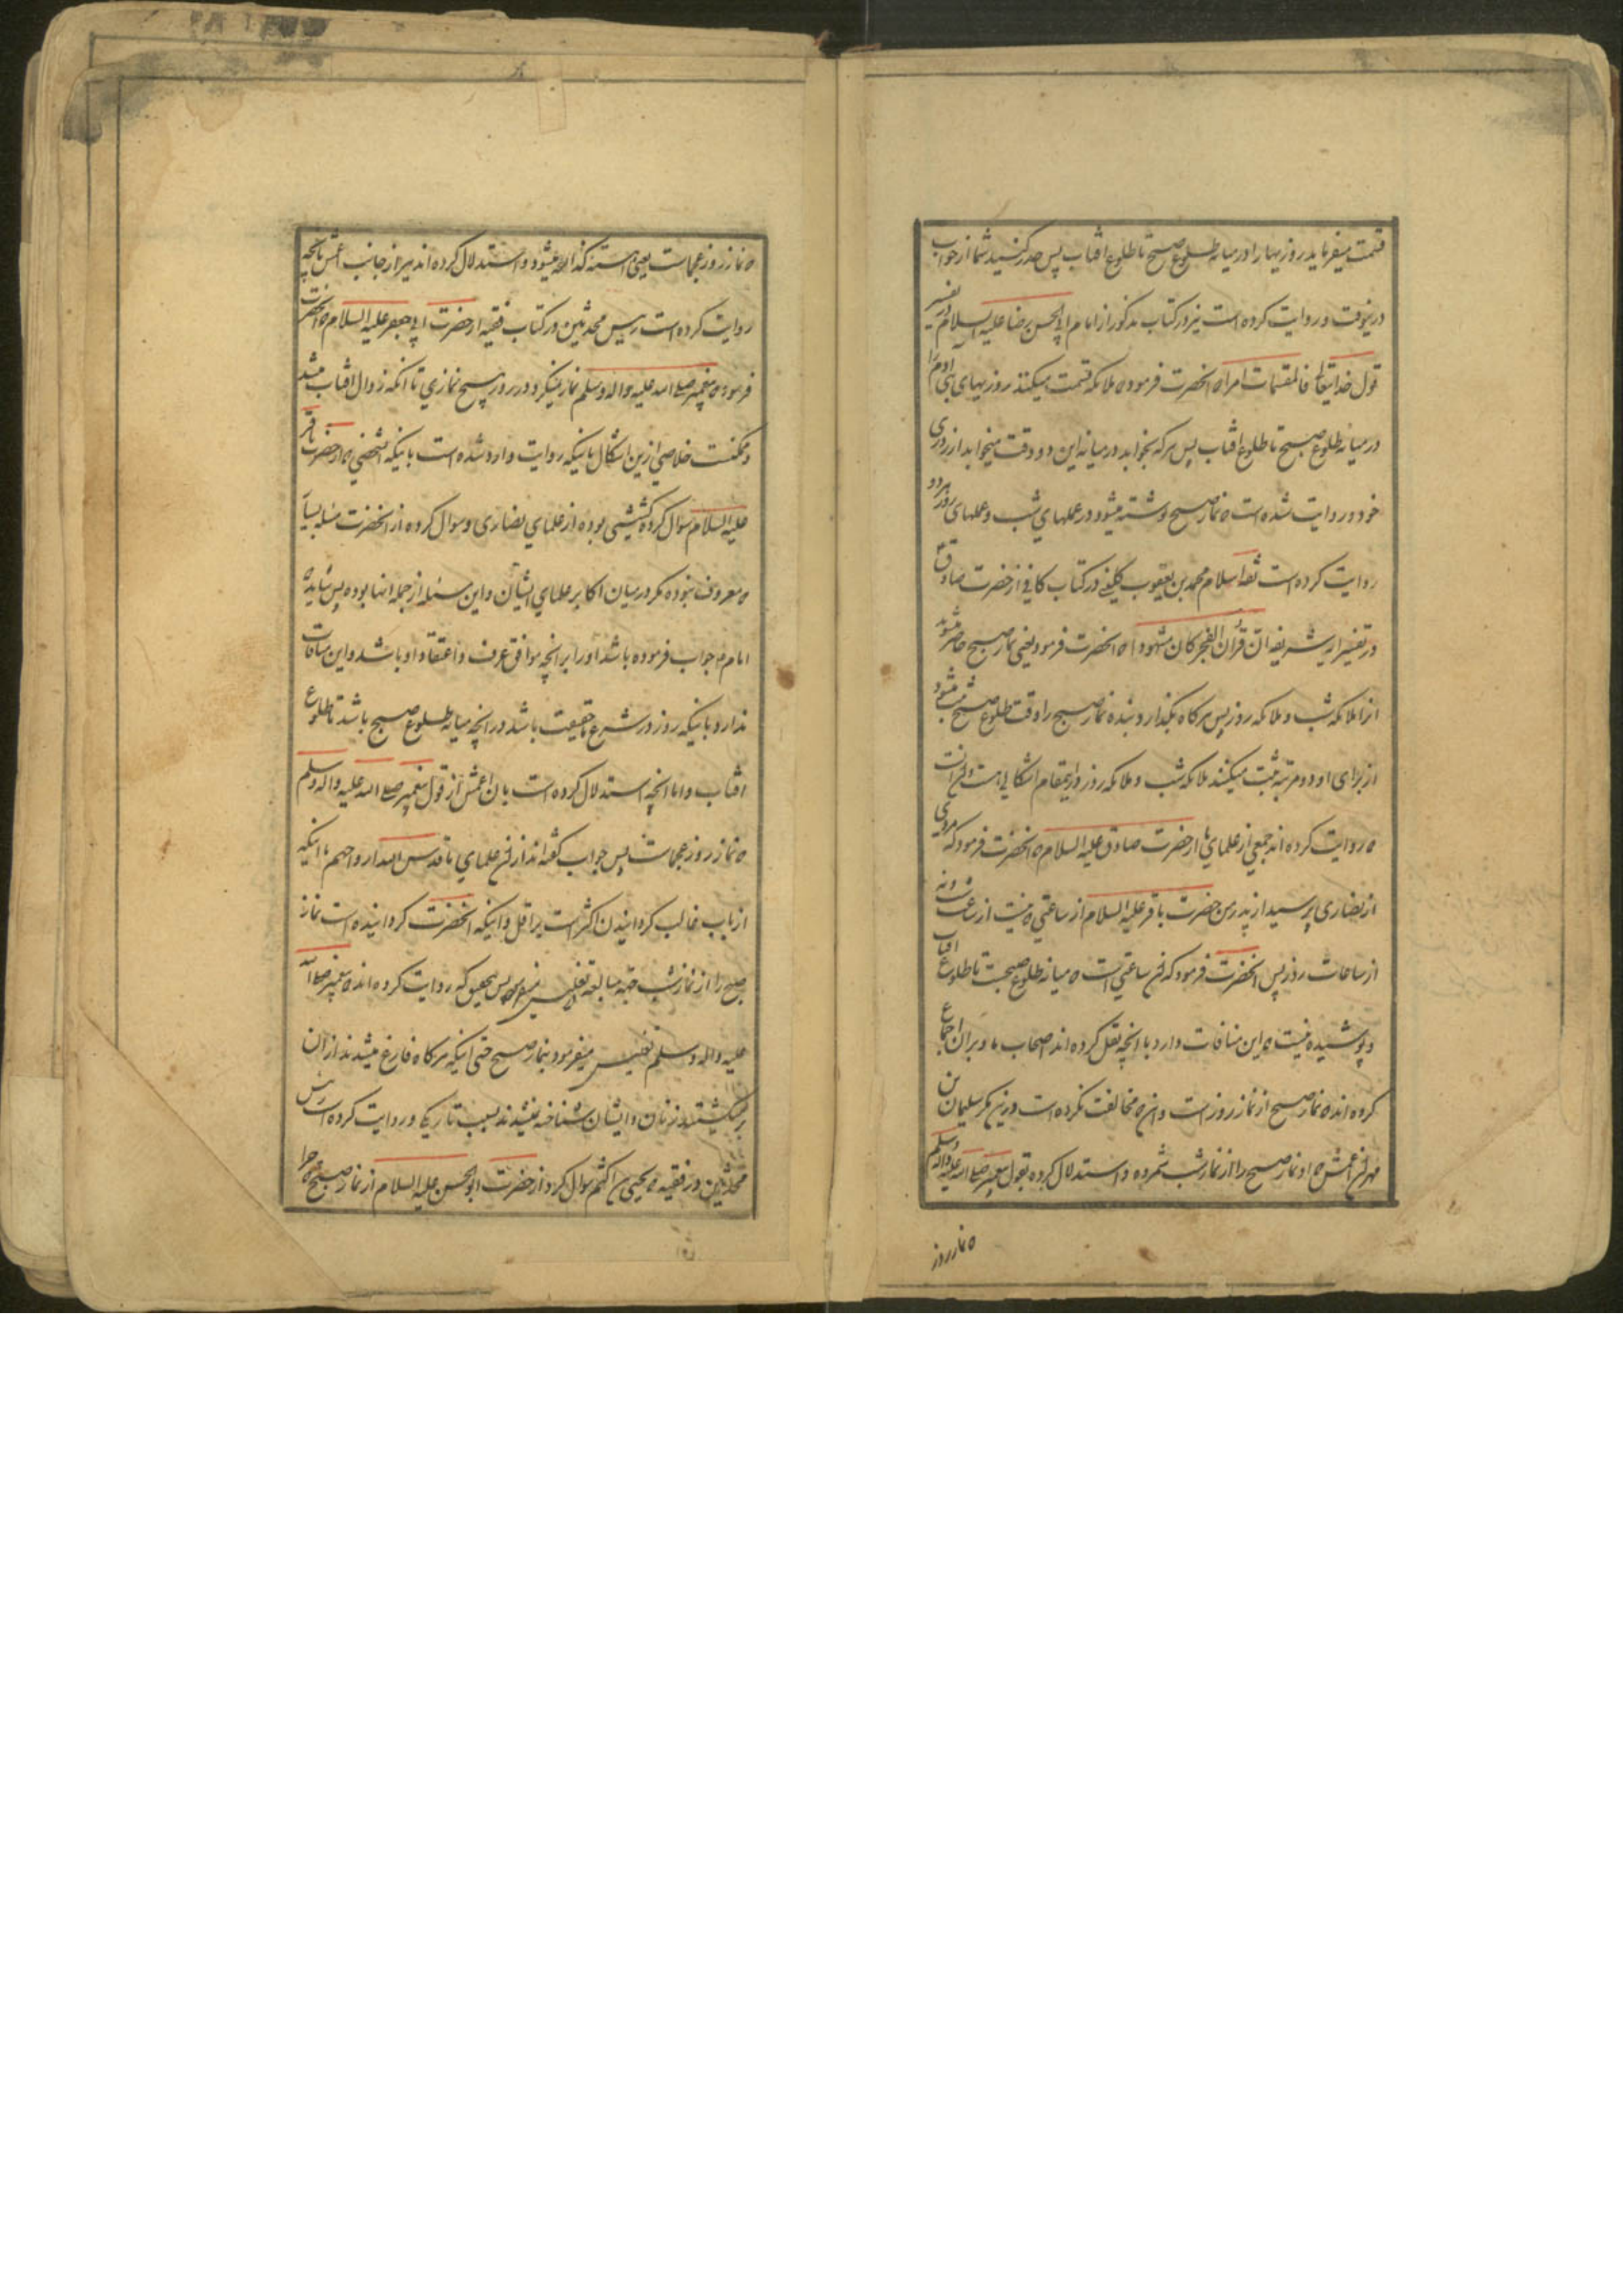 قسمت میفرماید روزیها را در میانه طلوع صبح تا طلوع افتاب پس حذر کنید شما از خواب
درینوقت و روایت کرده است نیز در کتاب مذکور از امام ابی الحسن رضا علیه السلام در تفسیر
قول خدایتعالی فالمقسمات امرا که انحضرت فرموده ملائکه قسمت میکنند روزیهای بنی ادم را
در میانه طلوع صبح تا طلوع افتاب پس هر که بخوابد در میانه این دو وقت میخوابد از روزی
خود و روایت شده است که نماز صبح نوشته میشود در عملهای شب و عملهای روز هر دو
روایت کرده است ثقه اسلام محمد بن یعقوب کلینی در کتاب کافی از حضرت صادق
در تفسیر ایه شریفه ان قران الفجر کان مشهودا که انحضرت فرمود یعنی نماز صبح حاضر میشوند
انرا ملائکه شب و ملائکه روز پس هر کاه بکذارد بنده نماز صبح را وقت طلوع صبح
از برای او دو مرتبه ثبت میکنند ملائکه شب و ملائکه روز و در اینمقام اشکالی هست و ان انست
که روایت کرده اند جمعی از علمای ما از حضرت صادق علیه السلام که انحضرت فرمود که مردی
از نصاری پرسید از پدر من حضرت باقر علیه السلام از ساعتی که نیست از ساعات شب و نه
از ساعات روز پس انحضرت فرمود که ان ساعتی است که میانه طلوع صبحست تا طلوع افتاب
و پوشیده نیست که این منافات دارد با انچه نقل کرده اند اصحاب ما و بر ان اجماع
کرده اند که نماز صبح از نماز روز است و انکه مخالفت نکرده است درین مکر سلیمان بن
مهران اعمش که او نماز صبح را از نماز شب شمرده و استدلال کرده بقول پیغمبر صلی الله علیه واله وسلم
که نماز روز
که نماز روز عجماست یعنی اهسته کذارده میشود و استدلال کرده اند نیز از جانب اعمش بانچه
روایت کرده است رییس محدثین در کتاب فقیه از حضرت ابی جعفر علیه السلام که انحضرت
فرموده که پیغمبر صلی الله علیه واله وسلم نماز نمیکرد در روز هیچ نمازی تا انکه زوال افتاب میشد
و ممکنست خلاصی ازین اشکال باینکه روایت وارد شده است باینکه شخصی که از حضرت باقر
علیه السلام سوال کرده کشیشی بوده از علمای نصاری و سوال کرده از انحضرت
که معروف نبوده مکر در میان اکابر علمای ایشان و این مسئله از جمله انها بوده پس شاید که
امام جواب فرموده باشد او را بر انچه موافق عرف و اعتقاد او باشد و این منافات
ندارد باینکه روز در شرع حقیقت باشد در انچه میانه طلوع صبح باشد تا طلوع
افتاب و اما انچه استدلال کرده است بان اعمش از قول پیغمبر صلی الله علیه واله وسلم
که نماز روز عجماست پس جواب کفته اند از ان علمای ما قدس الله ارواحهم باینکه
از باب غالب کردانیدن اکثر است بر اقل و اینکه انحضرت کردانیده است نماز
صبح را از نماز شب جهة مبالغه تغلیس پس بتحقیق که روایت کرده اند که پیغمبر صلی الله
علیه واله وسلم تغلیس میفرمود بنماز صبح حتی اینکه هر کاه فارغ میشدند از ان
بر میکشتند زنان و ایشان شناخته نمیشدند بسبب تاریکی و روایت کرده است رییس
محدثین در فقیه که یحیی بن اکثم سوال کرد از حضرت ابو الحسن علیه السلام از نماز صبح که چرا